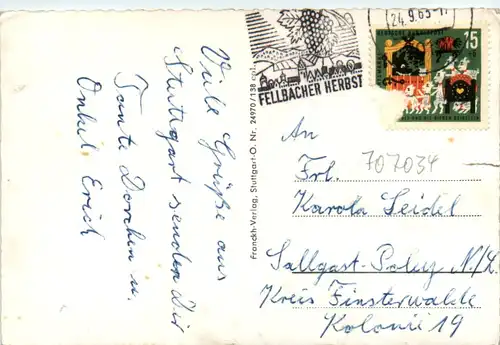 Viele Grüße aus
Stuttgart senden Dir
Tante Dorchen u.
Onkel Erich
Franckh-Verlag, Stuttgart-O. Nr. 24970/138
24.9.63
FELLBACHER HERBST
DEUTSCHE BUNDESPOST
15
An
Frl. 707034
Karola Seidel
Sallgast-Poley N/L.
Kreis Finsterwalde
Kolonie 19